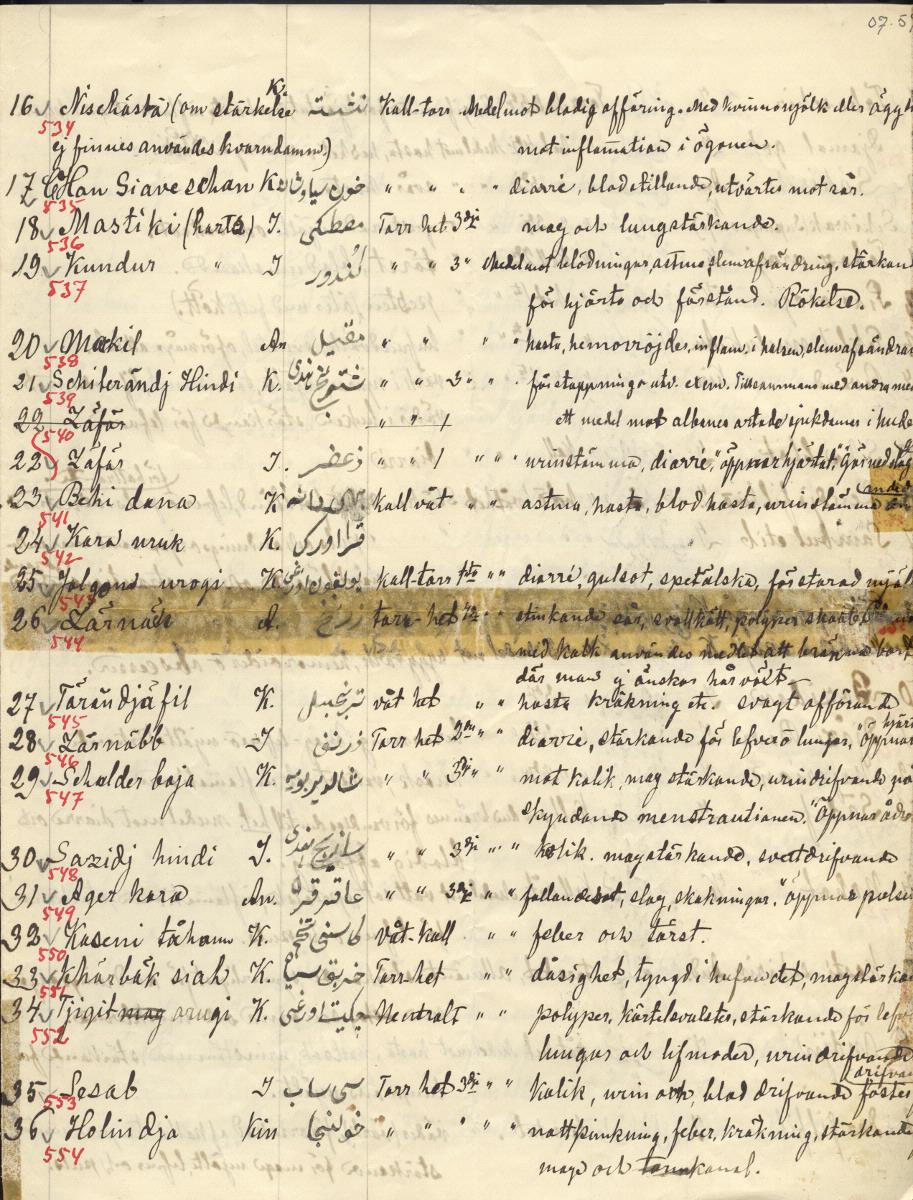 07.59
K.
16 Nischästä (om stärkelse نشسته Kall-torr Medel mot blodig afföring. Med kvinnomjölk eller ägg
534
ej finnes användes kvarndamm) mot inflamation i ögonen.
17 Chan Siaveschan K خون سیاوشان " " " " diarré, blodstillande, utvärtes mot sår.
535
18 Mastiki (harts) I. مصطکی Torr het 3dje mag och lungstärkande.
536
19 Kundur " I کندور " " 3" Medel mot blödningar, astma, slemafsöndring, stärkan
537
för hjärta och förstånd. Rökelse.
20 Mokil An مقیل " " " " hosta, hemorröjder, inflam. i halsen, slemafsöndran
538
21 Schiterändj Hindi K. شتورنج هندی " " 3 " " förstoppning o utv. exem. Tillsammans med andra me
539
22 Zäfär " " 1 ett medel mot albanes artade sjukdomar i hude
540
22 Zäfär I. زعفر " " 1 " " urinstämma, diarré, "öppnar hjärtat," Gör
23 Behi dana K بهی دانه kall våt " " astma, hosta, blodhosta, urinstämma
541
24 Kara uruk K. قرا اورک "
542
25 Jolgond urogi K یولغون اورغی kall-torr 1sta " " diarré, gulsot, spetälska, förstorad mjäl
543
26 Zärnäch A. زرنیخ torr-het " " stinkande sår, svallkött, polyper
544
med kalk användes medlet att bränna bort
där man ej önskar hårväxt
27 Tärändjäfil K. ترنجبیل våt het " " hosta kräkning etc. svagt afförande
545
28 Zärnäbb I زرنب Torr het 2dra " " diarré, stärkande för lefver o lungor, "öppnar hjärt
546
29 Schalder boja K. شالدیر بویه " " 3dje " " mot kolik, mag stärkande, urindrifvande på
547
skyndande menstruationen. "Öppnar ådro
30 Sazidj hindi I. سازیج هندی " " 3dje " " kolik. magstärkande, svettdrifvande
548
31 Ager kara An. عاقر قرا " " 3dje " " fallandesot, slag, skakningar, "öppnar polse
549
32 Kaseni tåham K. کاسنی تخم Våt-kall " " feber och törst.
550
33 Khärbäk siah K. خربق سیاه Torr het " " dåsighet, tyngd i hufvudet, magstärka
551
34 Tjigit mag arugi K. چگیت اورغی Neutralt " " polyper, körtelsvulster, stärkande för lef
552
lungor och lifmoder, urindrifvande
35 Sesab I سی ساب Torr het 3dje " " kolik, urin och blod drifvande foster drifva
553
36 Holindja Kin خولنجا " " " " " nattpinkning, feber, kräkning, stärkande
554
mage och tarmkanal.